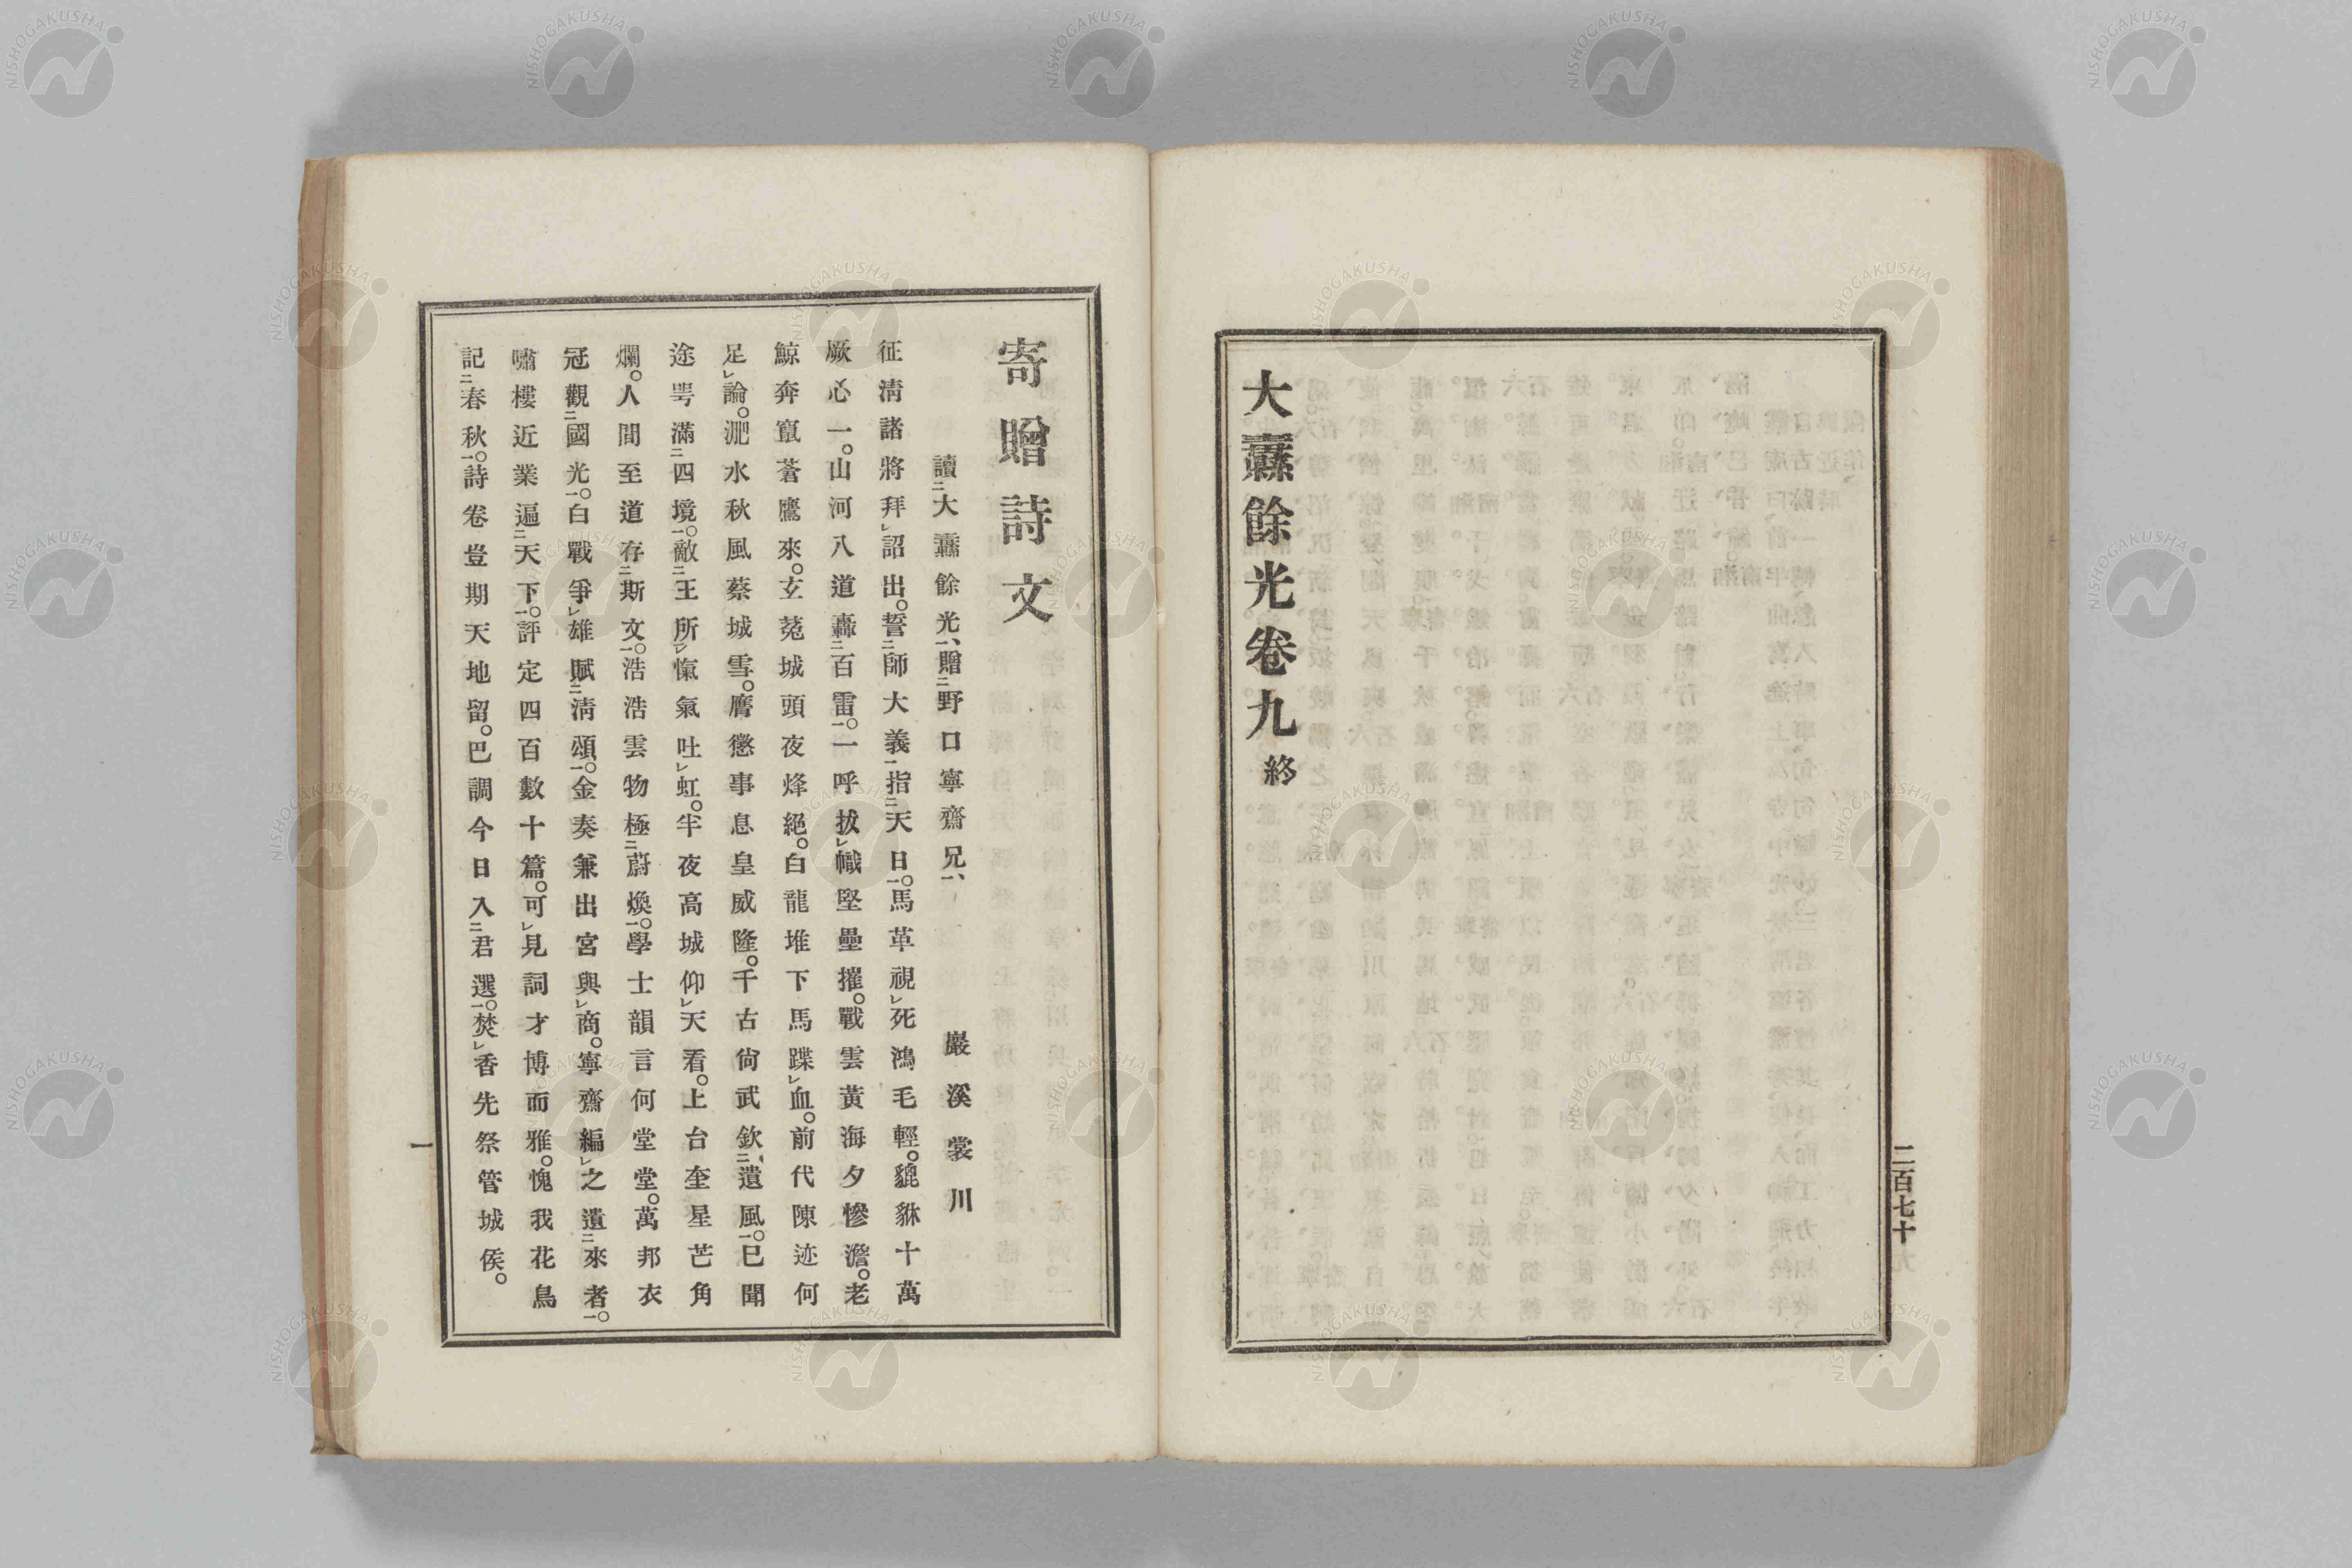 大纛餘光卷九終
二百七十九
寄贈詩文
讀二大纛餘光一、贈二野口寧齋兄一、
巖溪裳川
征淸諸將拜レ詔出。誓二師大義一指二天日一。馬革視レ死鴻毛輕。貔貅十萬
厥心一。山河八道轟二百雷一。一呼拔レ幟堅壘摧。戰雲黃海夕慘澹。老
鯨奔竄蒼鷹來。玄菟城頭夜烽絕。白龍堆下馬蹀レ血。前代陳迹何
足レ論。淝水秋風蔡城雪。膺懲事息皇威隆。千古尙武欽二遺風一。已聞
途咢滿二四境一。敵二王所一レ愾氣吐レ虹。半夜高城仰レ天看。上台奎星芒角
爛。人間至道存二斯文一。浩浩雲物極二蔚煥一。學士韻言何堂堂。萬邦衣
冠觀二國光一。白戰爭レ雄賦二淸頌一。金奏兼出宮與レ商。寧齋編レ之遺二來者一。
嘯樓近業遍二天下一。評定四百數十篇。可レ見詞才博而雅。愧我花鳥
記二春秋一。詩卷豈期天地留。巴調今日入二君選一。焚レ香先祭管城侯。
一
NISHOGAKUSHA